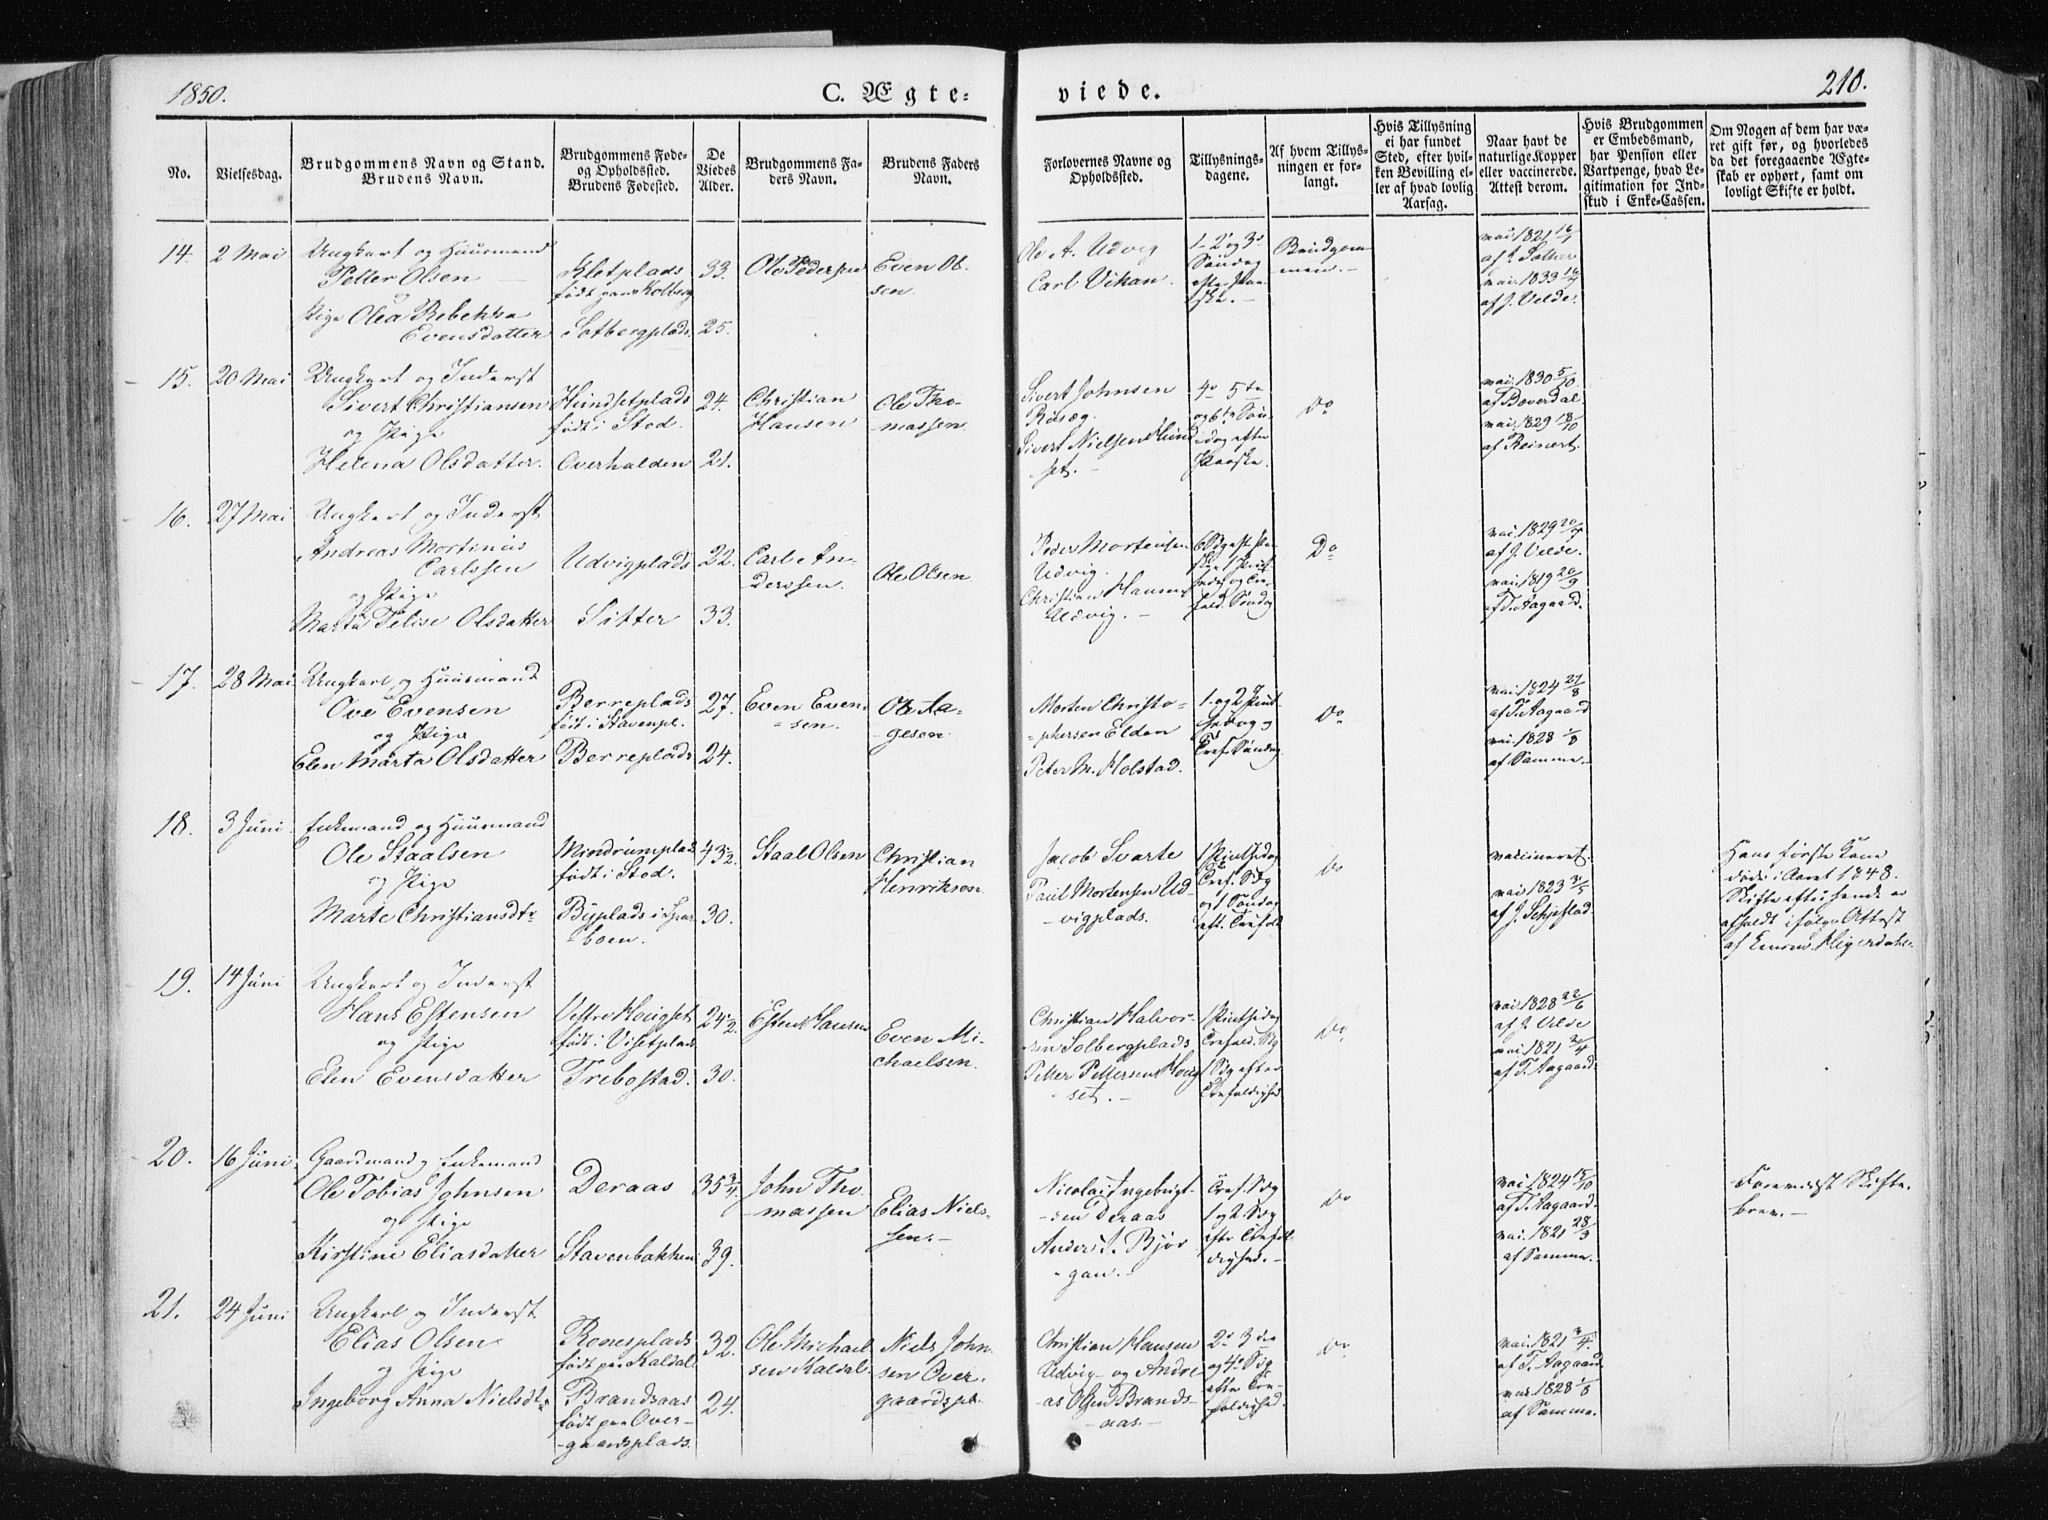 1850.
C. Ægte=
viede.
210.
No.
Vielsesdag.
Brudgommens Navn og Stand.
Brudens Navn.
Brudgommens Føde-
og Opholdssted.
Brudens Fødested.
De
Viedes
Alder.
Brudgommens Fa-
ders Navn.
Brudens Faders
Navn.
Forlovernes Navne og
Opholdssted.
Tillysnings-
dagene.
Af hvem Tillys-
ningen er for-
langt.
Hvis Tillysning
ei har fundet
Sted, efter hvil-
ken Bevilling el-
ler af hvad lovlig
Aarsag.
Naar havt de
naturlige Kopper
eller vaccinerede.
Attest derom.
Hvis Brudgommen
er Embedsmand,
har Pension eller
Vartpenge, hvad Le-
gitimation for Ind-
skud i Enke-Cassen.
Om Nogen af dem har væ-
ret gift før, og hvorledes
da det foregaaende Ægte-
skab er ophørt, samt om
lovligt Skifte er holdt.
14.
2 Mai
Ungkarl og Huusmand
Petter Olsen
Pige Olea Rebekka
Evensdatter
Kletplads
født paa Kolberg
Solbergplads.
33.
25.
Ole Pedersen
Even Ol-
sen.
Ole A. Udvig
Carl Vikan.
1- 2 og 3
Søndag
efter Paa-
ske.
Brudgom-
men.
vac. 1821
vac. 1833
af J. Velde.
15.
20 Mai
Ungkarl og Inderst
Sivert Christiansen
og Pige
Helena Olsdatter.
Hundsetplads
født i Stod.
Overhalden
24.
21.
Christian
Hansen
Ole Tho-
massen
Sivert Johnsen
Røsæg.
Sivert Nielsen Hund-
set.
4de 5te
og 6te Søn-
dag efter
Paaske.
Do
vac. 1830 5/10
af Bøverdal.
vac. 1829 18/10
af Reinert.
16.
27 Mai
Ungkarl og Inderst
Andreas Mortinus
Carlssen
og Pige
Marta Pelise Olsdatter
Udvigplads
Sitter
22.
33.
Carl An-
derssen.
Ole Olsen
Peder Mortensen
Udvig.
Christian Hansen
Udvig.
Do
vac. 1829
af J. Velde.
vac. 1819 20/9
af T. Aagaard.
17.
28 Mai
Ungkarl og Huusmand
Ove Evensen
og Pige
Elen Marta Olsdatter
Berreplads
født i Stavenpl.
Berreplads
27.
24.
Even Even-
sen.
Ole Aa-
gesen
Morten Christo-
phersen Elden
Peter M. Holstad.
1. og 2 Pint-
sedag og
Tref. Søndag
Do
vac. 1824 27/8
af T. Aagaard
vac. 1828 1/8
af Samme.
18.
3 Juni
Enkemand og Huusmand
Ole Staalsen
og Pige
Marte Christiansdtr
Mindrumplad
født i Stod.
Byplads i Spar-
boen.
43 1/2.
30.
Staal Olsen
Christian
Henriksen
Jacob Svarte
Paul Mortensen Ud-
vigplads.
1 Pintsedag
Tref. Sdg
og 1 Søndag
eft. Trefold
Do
vaccineret.
vac 1823 3/5
af J. Schjefstad
Hans første Kone
døde i Aaret 1848.
Skifte efter hende er
afholdt ifølge Attest
af
19.
14 Juni
Ungkarl og Inderst
Hans Estensen
og Pige
Elen Evensdatter
Vestre Hougset
født i Visetplads
Trebostad.
24 1/2
30.
Esten Hansen
Even Mi-
chaelsen.
Christian Halvor-
sen Solbergplads
Petter Pettersen Houg-
set.
1 Pintsedag
Trefold. Sdg
1 Sdg efter
Trefoldighed.
Do
vac. 1828 22/6
af J. Velde
vac. 1821 3/4
af T. Aagaard.
20.
16 Juni
Gaardmand og Enkemand
Ole Tobias Johnsen
og Pige
Kirstine Eliasdatter
Deraas
Stavenbakken
35 3/4
39.
John Tho-
massen
Elias Niels-
sen.
Nicolai Ingebrigt-
sen Deraas
Anders J. Bjør-
gan.
Tref. Sdg
1 og 2 Sdg
efter Trefol-
dighed.
Do
vac. 1824 15/10
af T. Aagaard.
vac. 1821 28/3
af Samme.
Foreviist Skifte-
brev.
21.
24 Juni
Ungkarl og Inderst
Elias Olsen
og Pige
Ingeborg Anna Nielsdtr
Ronesplads
født paa Kaldal.
Brandsaas
født paa Over-
gaardsplads.
32.
24.
Ole Michael-
sen Kaldal.
Niels John-
sen Over-
gaardspl.
Christian Hansen
Udvig og Andre-
as Olsen Brands-
aas.
2de 3die
og 4de Sdg
efter Tre-
foldighed.
Do
vac. 1821 3/4.
af T. Aagaard
vac. 1828 1/8
af Samme.